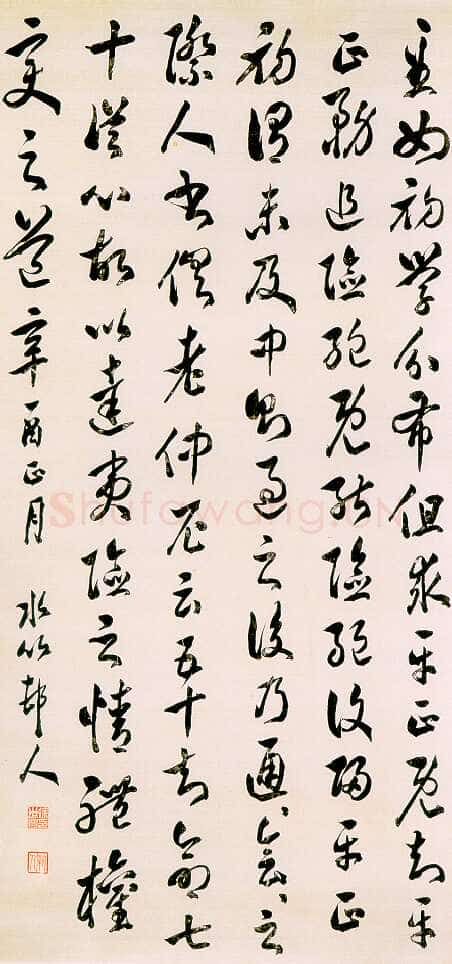 至如初學分布但求平正既知平
正務追險絕既能險絕復歸平正
初謂未及中則過之後乃通、會、之
際人書俱老仲尼云五十知命七
十從心故以達夷險之情體權
變之道辛酉正月 水竹邨人
Shufawang.CN